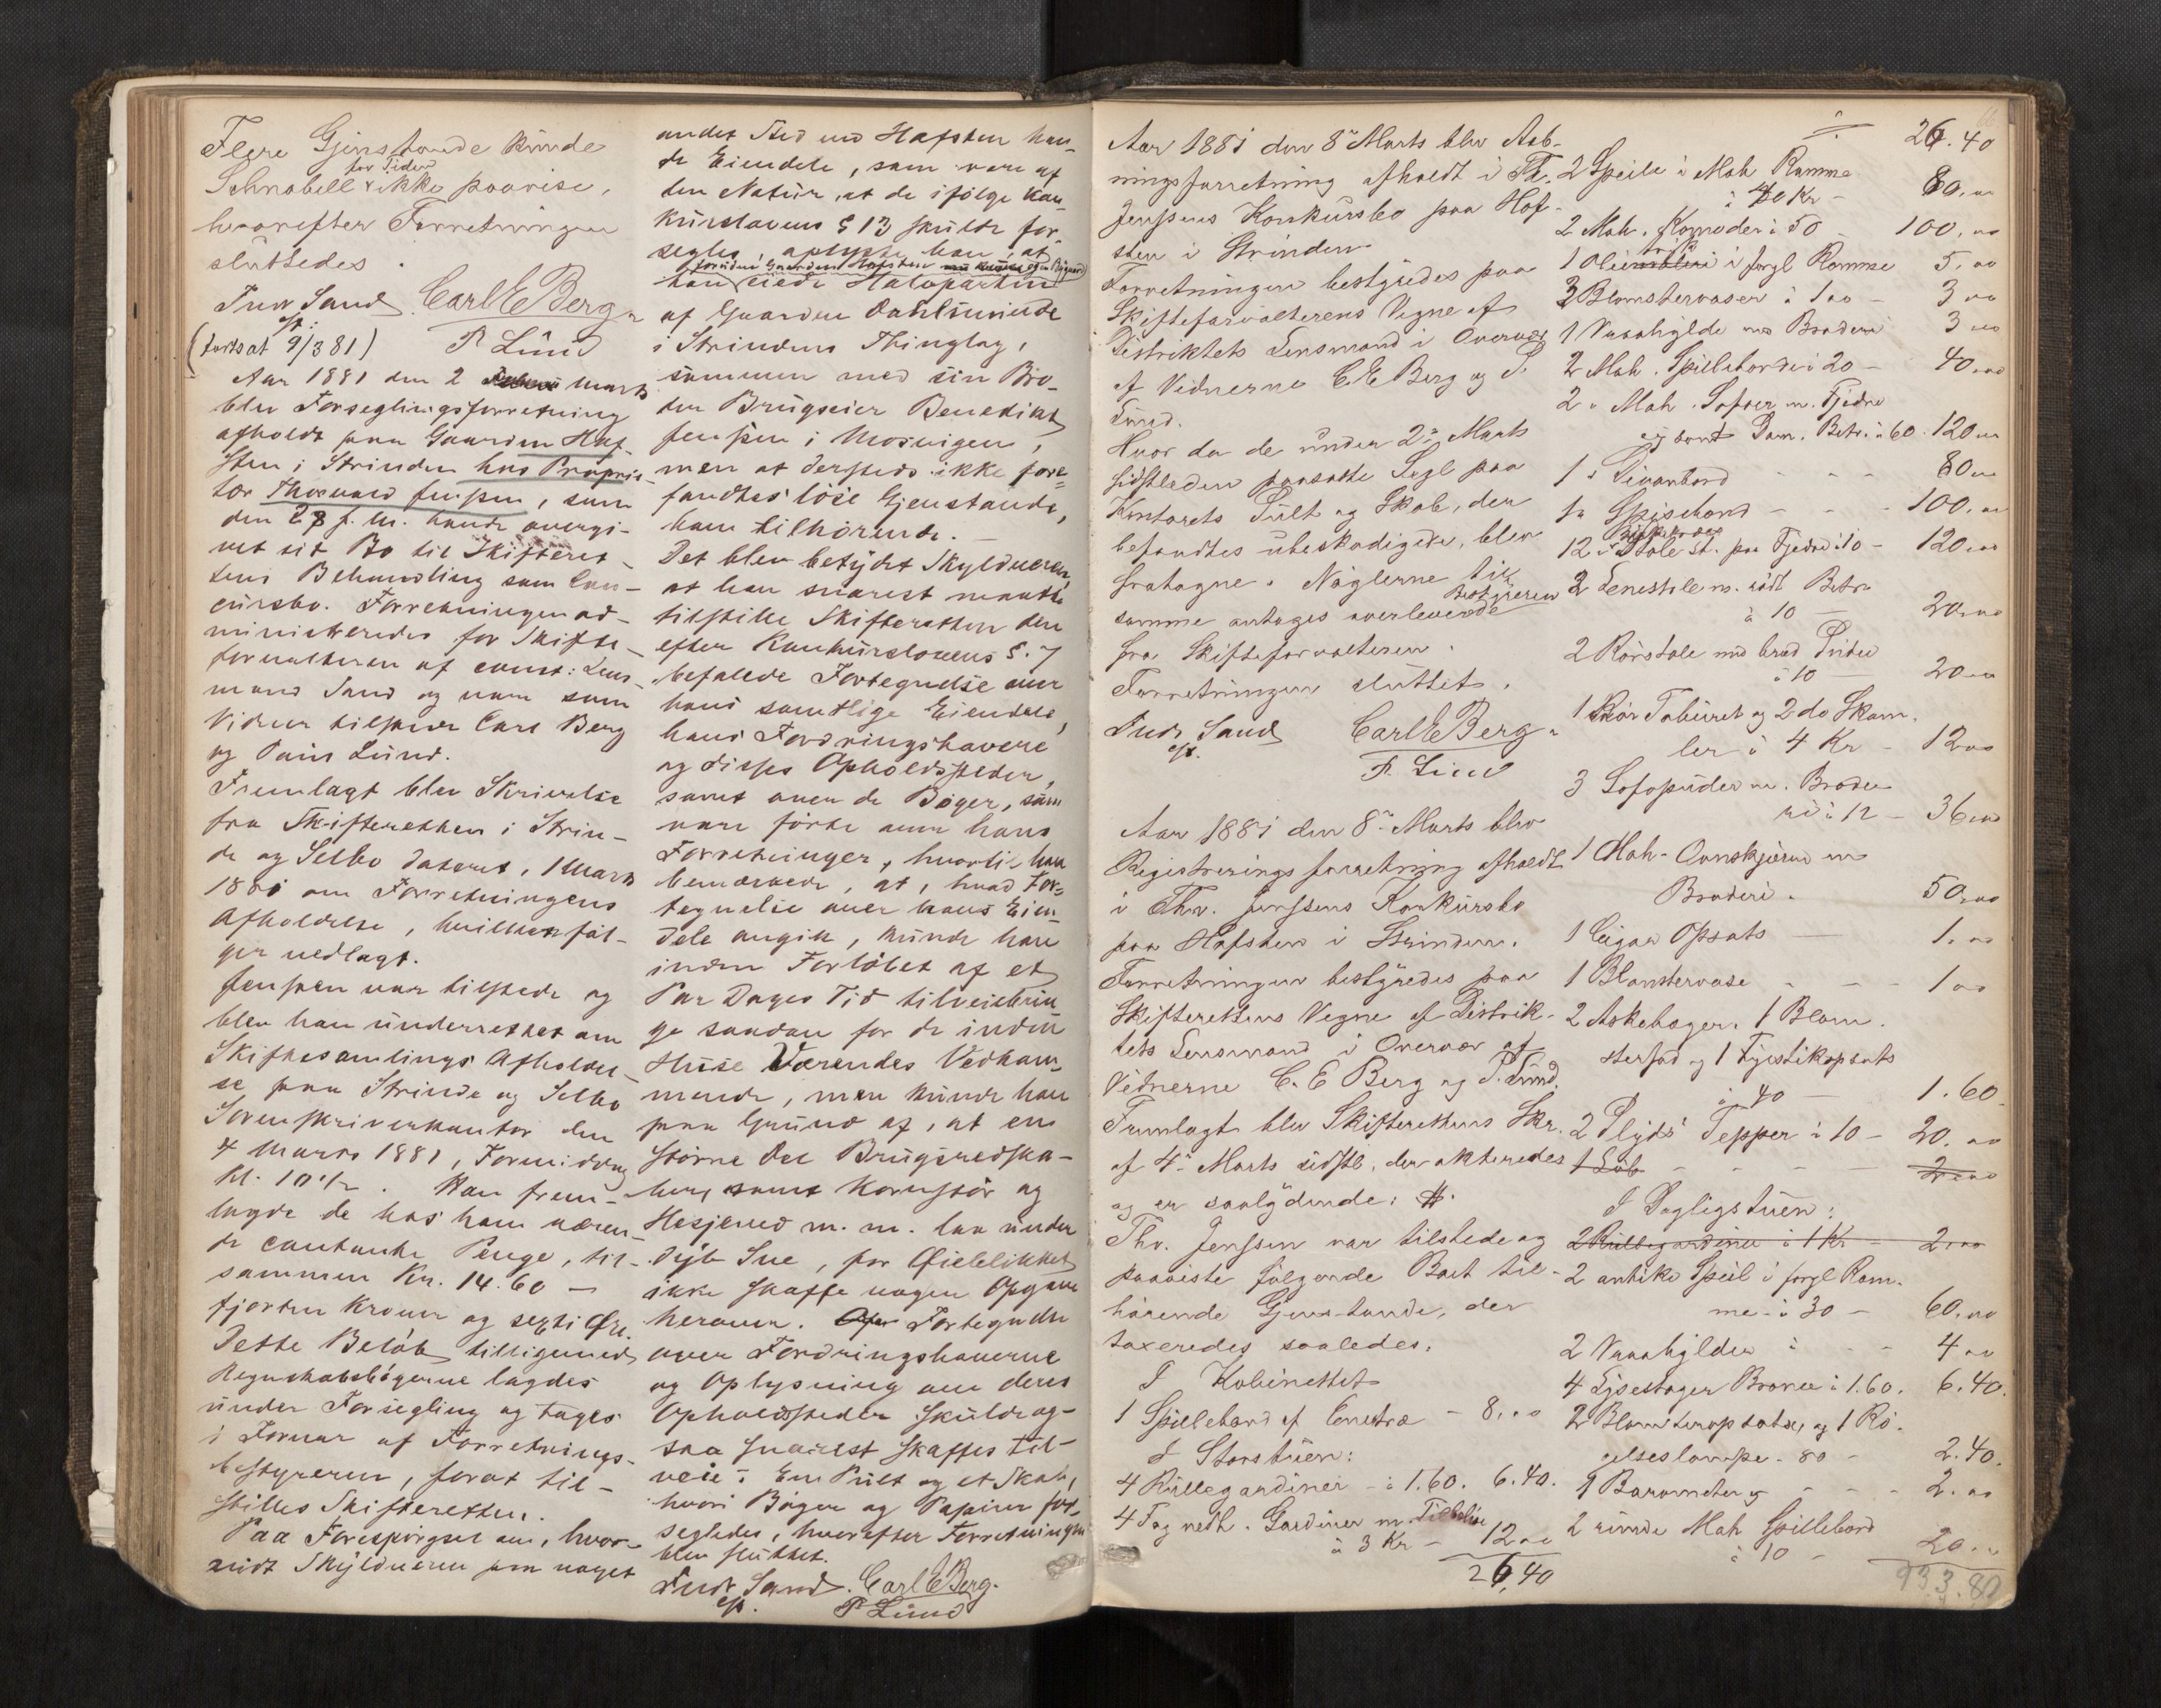 Flere Gjenstande kunde
for Tiden
Schnabell ikke paavise,
hvorefter Forretningen
sluttedes.
Sand Carl E Berg
cst: P Lund
(fortsat 9/3 81)
Aar 1881 den 2 Marts
blev Forseglingsforretning
afholdt paa Gaarden Haf-
sten i Strinden hos Proprie-
tær Thorvald Jenssen, som
den 28 f. M. havde overgi-
vet sit Bo til Skifteret-
tens Behandling som Con-
cursbo. Forretningen ad-
ministreredes for Skifte-
forvalteren af const: Lens-
mand Sand og vare som
Vidner tilstede Carl Berg
og Lund.
Fremlagt blev Skrivelse
fra Skifteretten i Strin-
de og Selbo dateret, 1 Marts
1881 om Forretningens
Afholdelse, hvilken föl-
ger vedlagt.
Jenssen var tilstede og
blev han underrettet om
Skiftesamlings Afholdel-
se paa Strinde og Selbo
Sorenskriverkontor den
4 Marts 1881, Formiddag
Kl. 10 1/2. Han frem-
lagde de hos ham væren-
de contante Penge, til-
sammen Kr. 14.60 —
fjorten Kroner og sexti Øre.
Dette Beløb tilligemed
Regnskabsbøgerne lagdes
under Forsegling og toges
i Forvar af Forretnings-
bestyreren, forat til-
stilles Skifteretten.
Paa Forespørgsel om, hvor-
vidt Skyldneren paa noget
andet Sted end Hafsten hav-
de Eiendele, som vare af
den Natur, at de ifölge Kon-
kurslovens § 13 skulde for-
segles, oplyste han, at
foruden Gaarden Hafsten
han eiede Halvparten
af Gaarden
i Strindens Thinglag,
sammen med sin Bro-
der Brugseier Benedikt
Jenssen i Mosvigen,
men at dersteds ikke fore-
fandtes löse Gjenstande,
ham tilhörende.
Det blev betydet Skyldneren,
at han snarest maatte
tilstille Skifteretten den
efter Konkurslovens §. 7
befalede Fortegnelse over
hans samtlige Eiendele,
hans Fordringshavere
og disses Opholdssteder,
samt over de Bøger, som
vare förte over hans
Forretninger, hvortil han
bemærkede, at, hvad For-
tegnelse over hans Eien-
dele angik, kunde han
inden Forløbet af et
Par Dages Tid tilveiebrin-
ge saadan for de inden
Huse Værendes Vedkom-
mende, men kunde han
paa Grund af, at en
större Del Brugsredska-
ber samt Kornstör og
Hesjeved m. m. laa under
dyb Sne, for Øieblikket
ikke skaffe nogen Opgave
herover. Fortegnelse
over Fordringshaverne
og Oplysning om deres
Opholdssteder skulde og-
saa snarest skaffes til-
veie. En Pult og et Skab,
hvori Bøger og Papirer for-
segledes, hvorefter Forretningen
blev sluttet.
Sand. Carl E Berg.
cst. P Lund
Aar 1881 den 8de Marts blev Aab-
ningsforretning afholdt i Th.
Jenssens Konkursbo paa Haf-
sten i Strinden
Forretningen bestyredes paa
Skifteforvalterens Vegne af
Distriktets Lensmand i Overvær
af Vidnerne C E Berg og P.
Lund.
Hvor da de under 2den Marts
sidstleden paasatte Segl paa
Kontorets Pult og Skab, der
befandtes ubeskadigede, blev
fratagne. Nøglerne til
Bestyreren
samme antages overleverede
fra Skifteforvalteren.
Forretningen sluttet.
Sand Carl E Berg
cst. P. Lund
Aar 1881 den 8de Marts blev
Registreringsforretning afholdt
i Thv. Jenssens Konkursbo
paa Hafsten i Strinden.
Forretningen bestyredes paa
Skifterettens Vegne af Distrik-
tets Lensmand i Overvær af
Vidnerne C. E Berg og P. Lund.
Fremlagt blev Skifterettens Skr.
af 4de Marts sidstl. der akteredes
og er saalydende: #.
Thv. Jenssen var tilstede og
paaviste følgende Boet til-
hørende Gjenstande, der
taxeredes saaledes.
I Kabinettet
1 Spillebord af Enetræ - 8,00
I Storstuen:
4 Rullegardiner - à 1.60. 6.40.
4 Fag neth. Gardiner m. Tilbehör
à 3 Kr - 12 00
26,40
26.40
2 Speile i Mah Ramme
à 40 Kr - 80.00
2 Mah. Komoder à 50 - 100,00
1 Olietrik i forgl Ramme 5,00
3 Blomstervaser à 1 00 - 3 00
1 Vaashylde med Broderi 3 00
2 Mah. Spilleborde à 20 - 40,00
2 " Mah. Sofaer m. Fjedre
og sort Dam. Betr. à 60. 120 00
1 " Divanbord - - - 80 00
1 " Spisebord - - - 100.00
12 " Stole st. paa Fjedre à 10 - 120 00
2 Lenestole m. rødt Betr.
à 10 — 20,00
2 Rørstole med brod Puder
à 10 20 00
1 Rör Taburet og 2 do Skam.
ler à 4 Kr - 12 00
3 Sofapuder m. Brode-
ri à 12 - 36 00
1 Mah - Ovnskjærm m
Broderi. 50,00
1 Cigar Opsats — 1.00
1 Blomstervase - - - 1 00
2 Askebæger. 1 Blom.
sterfad og 1 Fyrstikopsats
à 40 — 1.60
2 Plyds Tepper à 10 - 20.00
1 Löb - - - 2,00
I Dagligstuen:
2 Rullegardiner à 1 Kr - 2,00
2 antike Speil i forgl Ram-
me - à 30 - 60.00
2 Vaashylder à - - 4 00
4 Lysestager Bronce à 1.60. 6.40.
2 Blomsteropsatse, og 1 Rö.
gelseslampe - 80 - 2.40.
1 Barometer - - - 2.00
2 runde Mah Spillebord
à 10 - 20 00
933.80